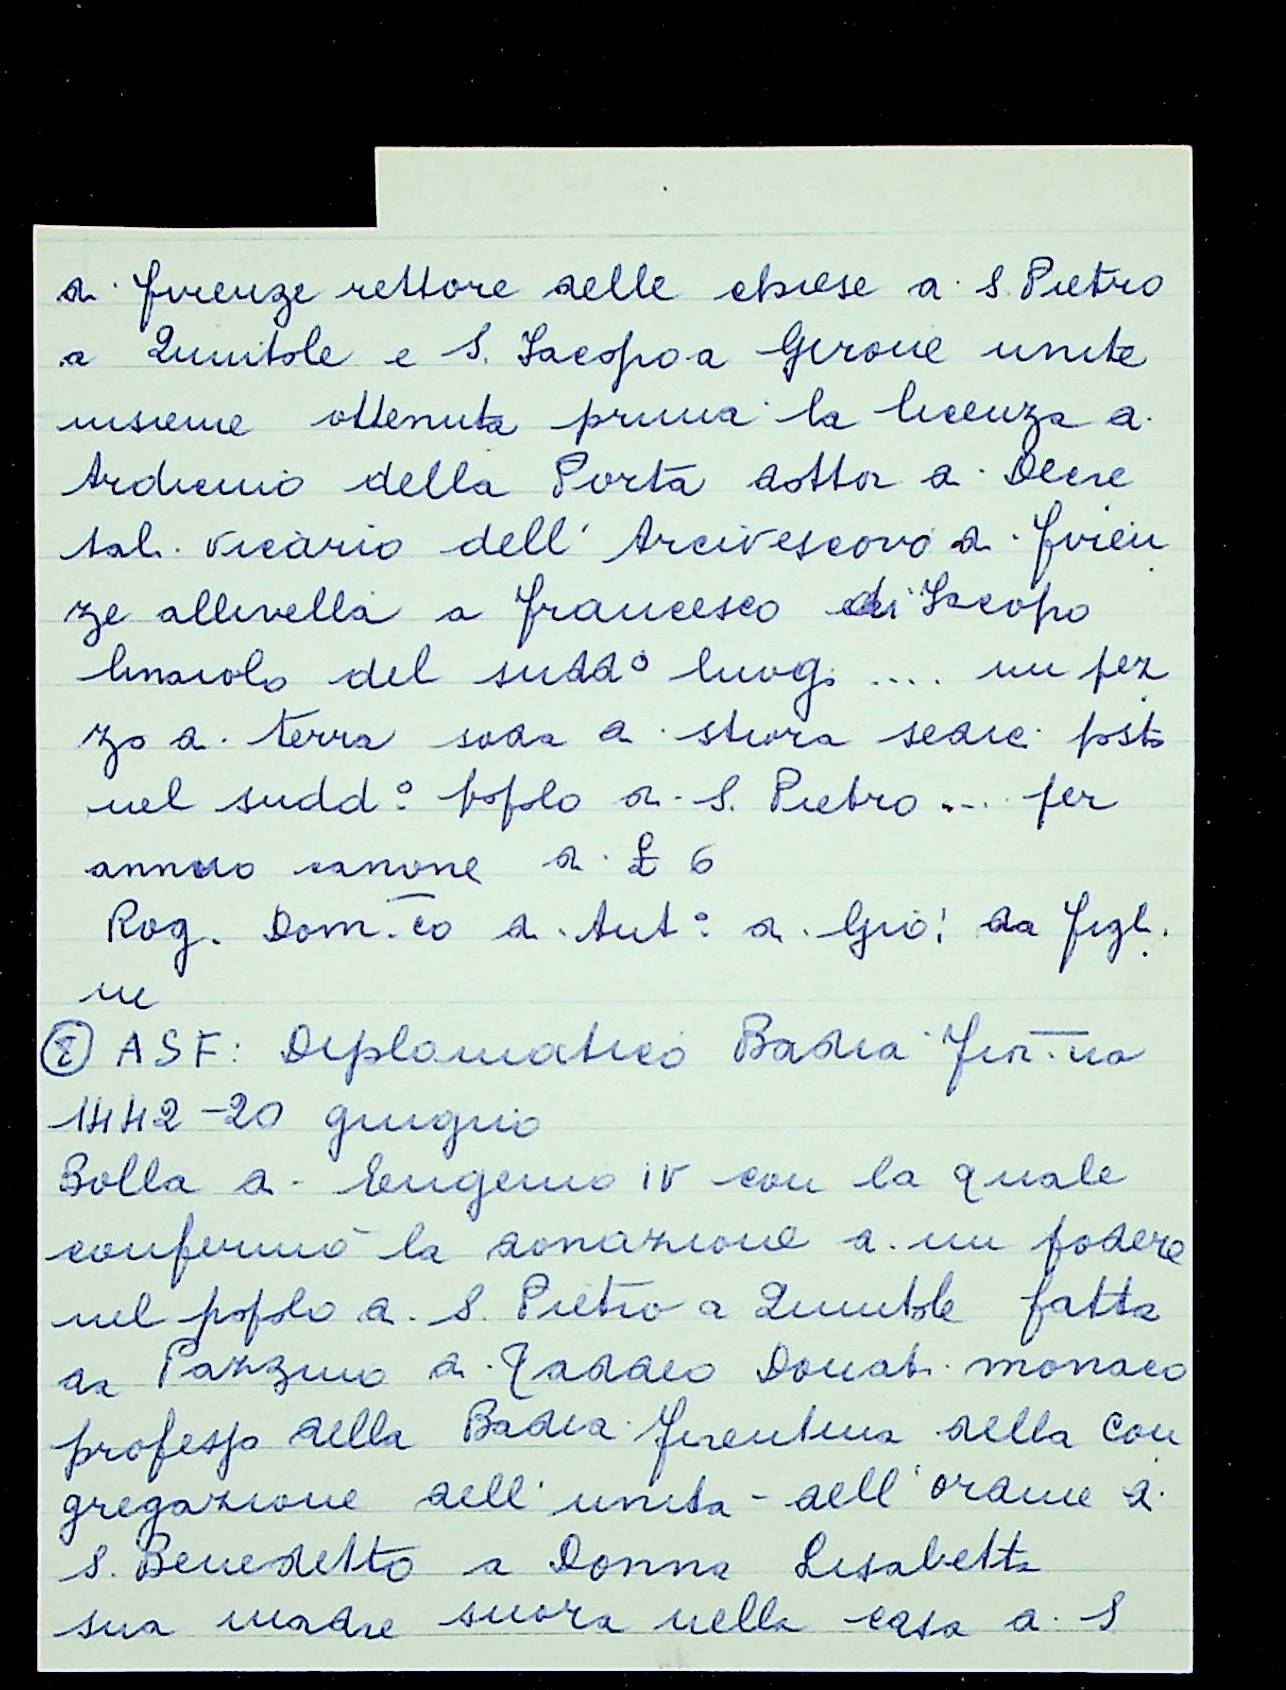 di Firenze rettore delle chiese di S. Pietro
a Quintole e S. Jacopo a Girone unite
insieme ottenuta prima la licenza di
Ardicino della Porta dottor di Decre
tali vicario dell' Arcivescovo di Firen
ze allivella a Francesco di Jacopo
linaiolo del sudd° luogo .... un pez
zo di terra soda di stiora sedici posto
nel sudd° popolo di S. Pietro .... per
annuo canone di £ 6
Rog. Dom.co di Ant° di Gio: da Figli
ne
ASF: Diplomatico Badia Fior.na
1442-20 giugno
Bolla di Eugenio IV con la quale
confermò la donazione di un podere
nel popolo di S. Pietro a Quintole fatta
da Pazzino di Taddeo Donati monaco
professo della Badia Fiorentina della Con
gregazione dell' unità - dell' ordine di
S. Benedetto a Donna Lisabetta
sua madre suora nella casa di S